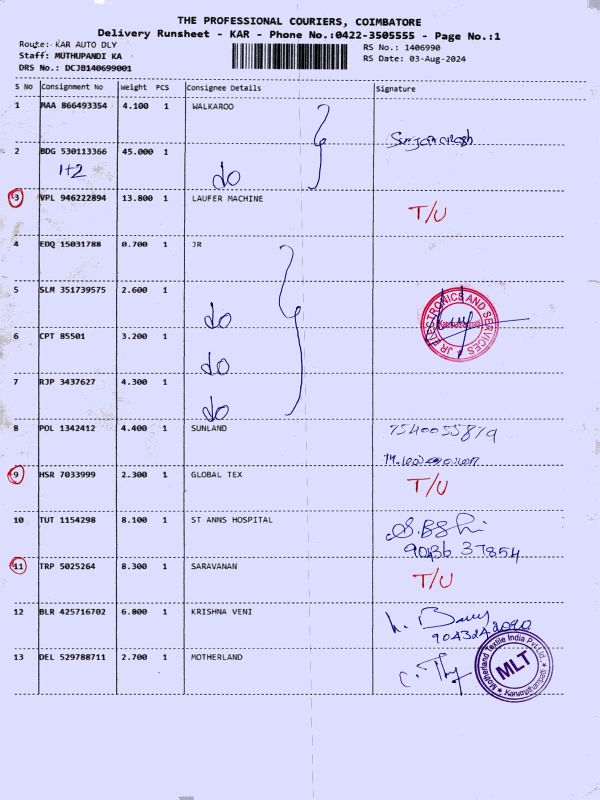 THE PROFESSIONAL COURIERS, COIMBATORE
Delivery Runsheet - KAR - Phone No.:0422-3505555 - Page No.:1
Route: KAR AUTO DLY
Staff: MUTHUPANDI KA
DRS No.: DCJB140699001
RS No.: 1406990
RS Date: 03-Aug-2024
S No Consignment No Weight PCS Consignee Details Signature
1 MAA 866493354 4.100 1 WALKAROO
2 BDG 530113366 45.000 1
1+2 do
3 VPL 946222894 13.800 1 LAUFER MACHINE T/U
4 EDQ 15031788 0.700 1 JR
5 SLM 351739575 2.600 1 do
JR ELECTRONICS AND SERVICES
6 CPT 85501 3.200 1 do
7 RJP 3437627 4.300 1 do
8 POL 1342412 4.400 1 SUNLAND 7540055879
9 HSR 7033999 2.300 1 GLOBAL TEX T/U
10 TUT 1154298 8.100 1 ST ANNS HOSPITAL
11 TRP 5025264 8.300 1 SARAVANAN T/U
12 BLR 425716702 6.800 1 KRISHNA VENI
13 DEL 529788711 2.700 1 MOTHERLAND
Motherland Textile India Pvt.Ltd.
MLT
Karumathampatti